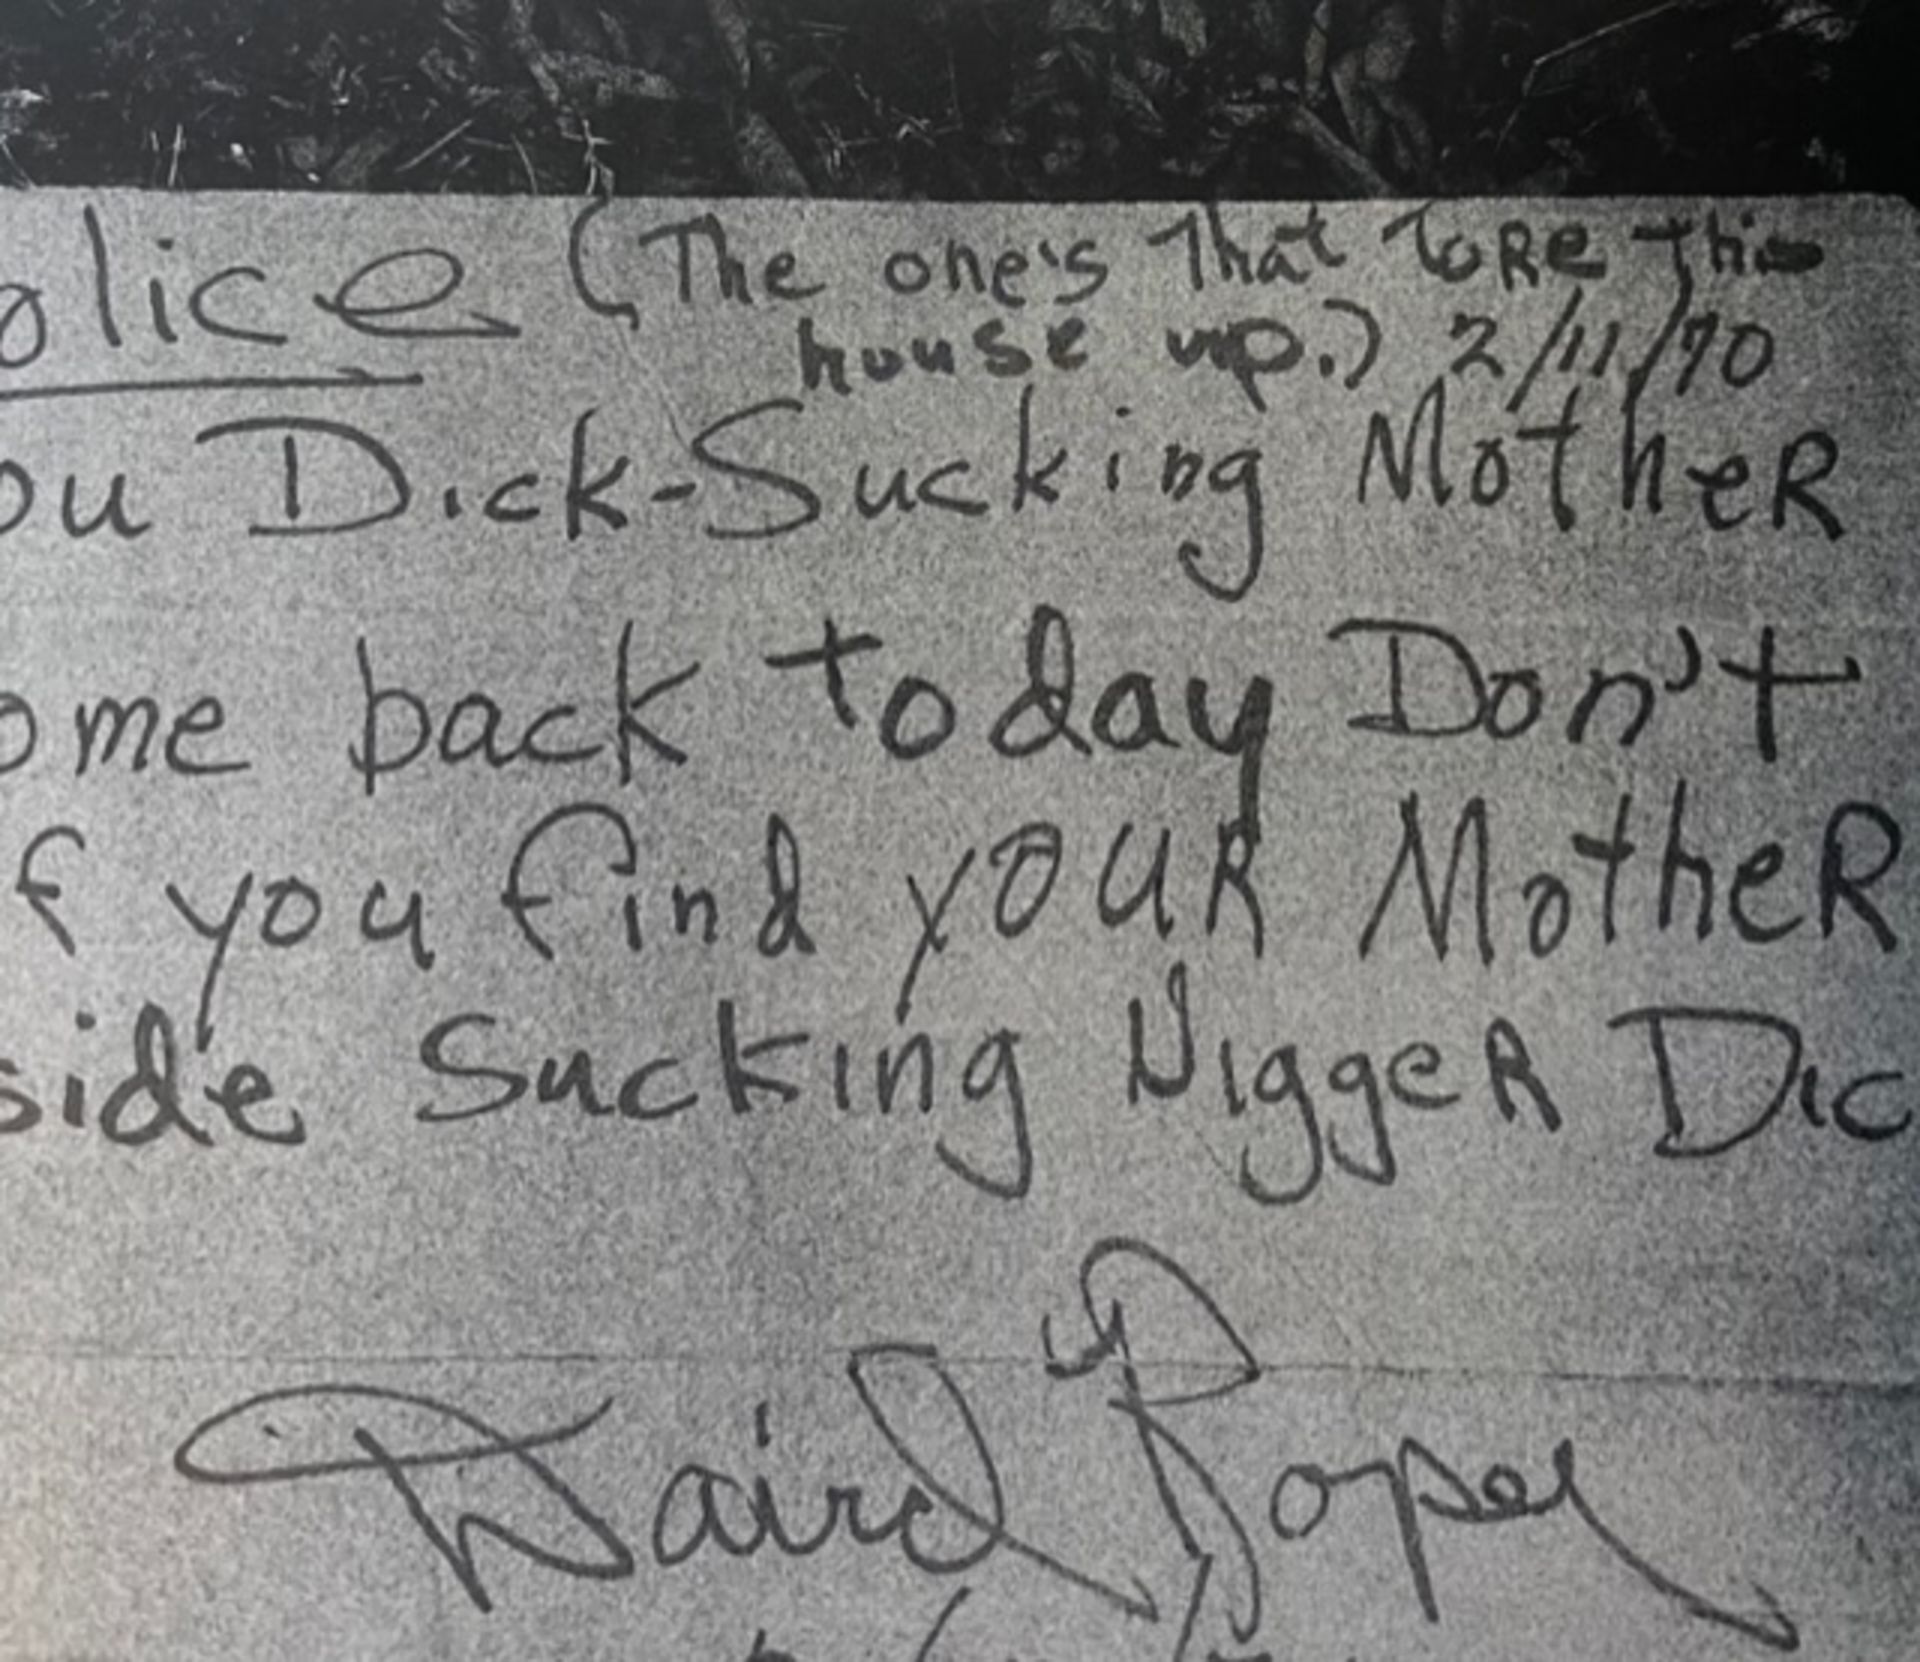 olice (The one's That ToRe This
house up.) 2/11/70
ou Dick-Sucking MotheR
ome back today Don't
f you find youR MotheR
side Sucking NiggeR Dic
David Roper